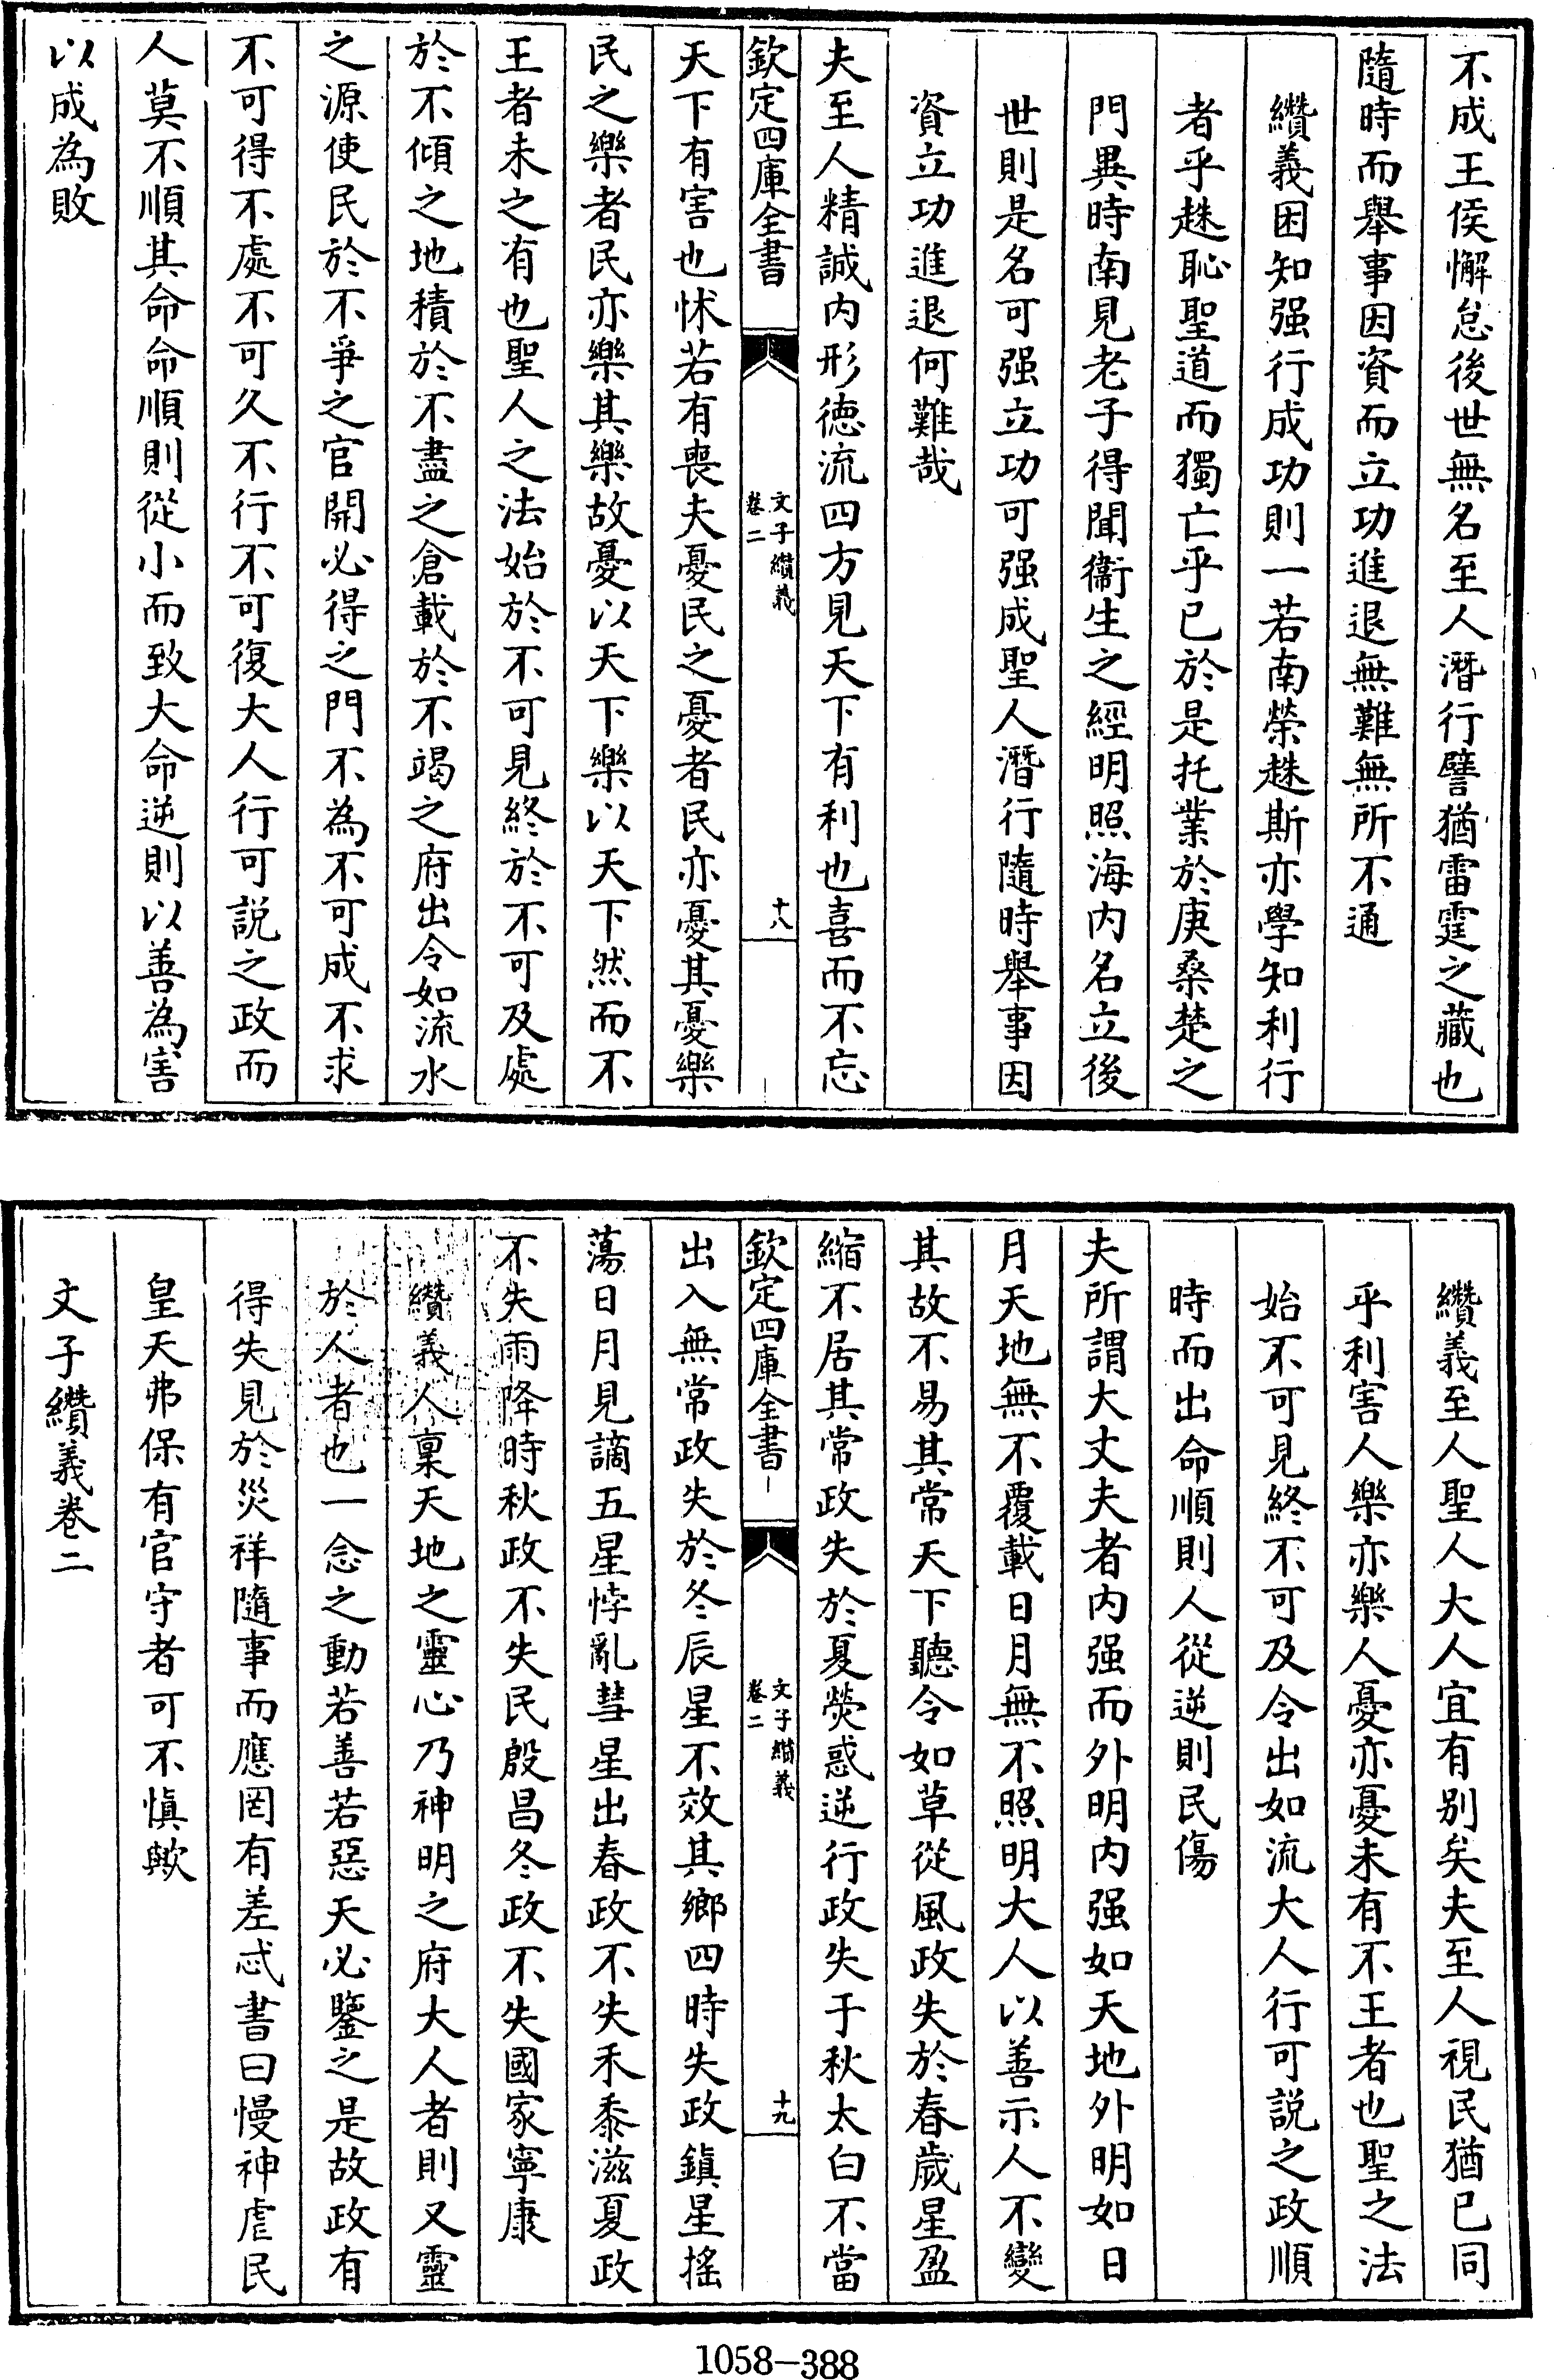 不成王侯懈怠後世無名至人潛行譬猶雷霆之藏也
隨時而舉事因資而立功進退無難無所不通
纘義困知强行成功則一若南榮趎斯亦學知利行
者乎趎恥聖道而獨亡乎已於是托業於庚桑楚之
門異時南見老子得聞衞生之經明照海内名立後
世則是名可强立功可强成聖人潛行隨時舉事因
資立功進退何難哉
夫至人精誠内形德流四方見天下有利也喜而不忘
欽定四庫全書
文子纘義
卷二
十八
天下有害也怵若有喪夫憂民之憂者民亦憂其憂樂
民之樂者民亦樂其樂故憂以天下樂以天下然而不
王者未之有也聖人之法始於不可見終於不可及處
於不傾之地積於不盡之倉載於不竭之府出令如流水
之源使民於不爭之官開必得之門不為不可成不求
不可得不處不可久不行不可復大人行可說之政而
人莫不順其命命順則從小而致大命逆則以善為害
以成為敗
纘義至人聖人大人宜有别矣夫至人視民猶已同
乎利害人樂亦樂人憂亦憂未有不王者也聖之法
始不可見終不可及令出如流大人行可說之政順
時而出命順則人從逆則民傷
夫所謂大丈夫者内强而外明内强如天地外明如日
月天地無不覆載日月無不照明大人以善示人不變
其故不易其常天下聽令如草從風政失於春歲星盈
縮不居其常政失於夏熒惑逆行政失于秋太白不當
欽定四庫全書
文子纘義
卷二
十九
出入無常政失於冬辰星不效其鄉四時失政鎮星搖
蕩日月見謫五星悖亂彗星出春政不失禾黍滋夏政
不失雨降時秋政不失民殷昌冬政不失國家寧康
纘義人稟天地之靈心乃神明之府大人者則又靈
於人者也一念之動若善若惡天必鑒之是故政有
得失見於災祥隨事而應罔有差忒書曰慢神虐民
皇天弗保有官守者可不愼歟
文子纘義卷二
1058-388